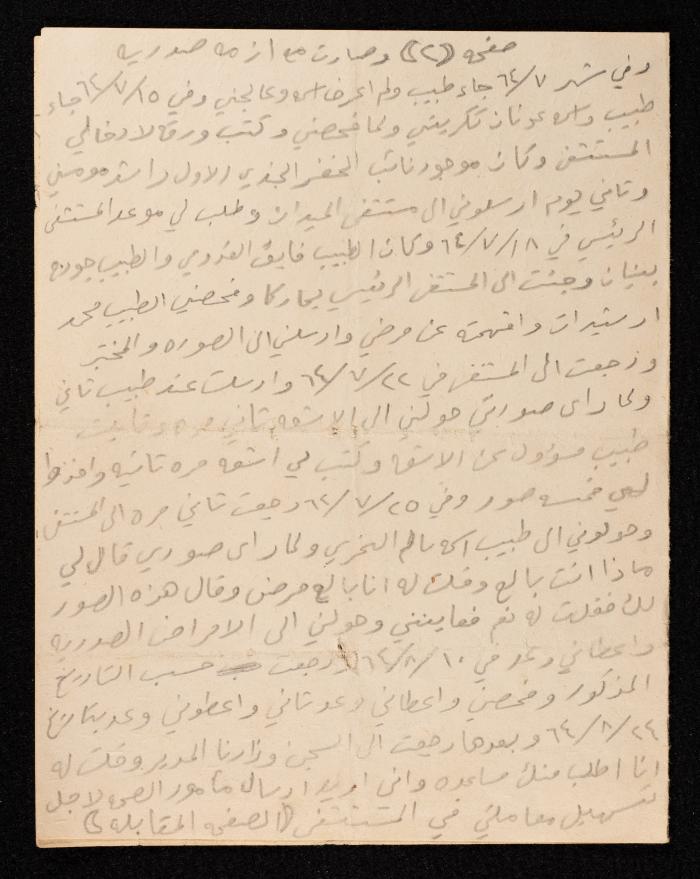 صفحه (٢٢) وصارت مع ازمه صدريه
وفي شهر ٦٤/٧ جاء طبيب ولم اعرض وعالجني وفي ٦٤/٧/١٥ جاء
طبيب عدنان تكريتي ولما فحصني وكتب ورقه لادخالي
المستشفى وكان موجود نائب المخفر الجندي الاول راشد مومني
وتاني يوم ارسلوني الى مستشفى الميدان وطلب لي موعد المستشفى
الرئيسي في ٦٤/٧/١٨ وكان الطبيب فايق القدومي والطبيب جورج
بينيان وجئت الى المستشفى الرئيسي بماركا وفحصني الطبيب محمد
ارشيدات وافهمته عن مرضي وارسلني الى الصوره والمختبر
ورجعت الى المستشفى في ٦٤/٧/٢٢ وارسلت عند طبيب تاني
ولما راى صورتي حولني الى الاشعه تاني مره وقابلت
طبيب مسؤول عن الاشعه وكتب لي اشعه مره تانيه واخذوا
لي خمسه صور وفي ٦٤/٧/٢٥ رجعت تاني مره الى المستشفى
وحولوني الى طبيب اسمه سالم البخري ولما راى صوري قال لي
ماذا انت بالع وقلت له انا بالع مرض وقال هذه الصور
لك فقلت له نعم فعاينني وحولني الى الامراض الصدريه
واعطاني وعد في ٦٤/٨/١٠ ورجعت حسب التاريخ
المذكور وفحصني واعطاني وعد تاني واعطوني وعد بتاريخ
٦٤/٨/٢٤ وبعدها رجعت الى السجن وزارنا المدير وقلت له
انا اطلب منك مساعده واني اريد ارسال مأمور الصحه لاجل
تسهيل معاملتي في المستشفى (الصفحه المقابله)